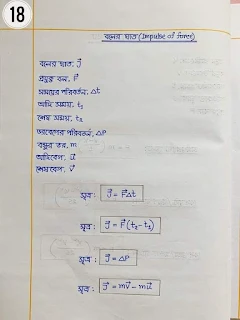 18
বলের ঘাত (Impulse of force)
বলের ঘাত, J⃗
প্রযুক্ত বল, F⃗
সময়ের পরিবর্তন, Δt
আদি সময়, t₁
শেষ সময়, t₂
ভরবেগের পরিবর্তন, ΔP
বস্তুর ভর, m
আদিবেগ, u⃗
শেষবেগ, v⃗
সূত্র: J⃗ = F⃗Δt
সূত্র: J⃗ = F⃗(t₂-t₁)
সূত্র: J⃗ = ΔP
সূত্র: J⃗ = mv⃗ - mu⃗